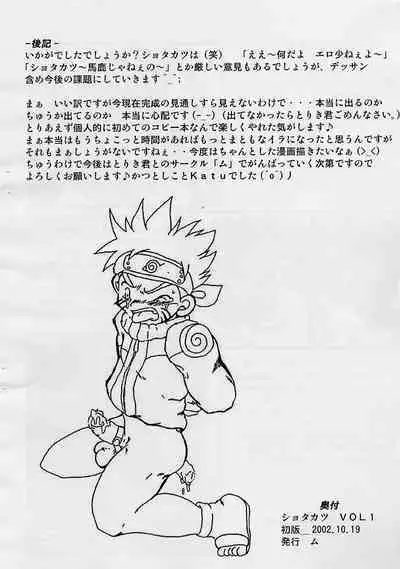 -後記-
いかがでしたでしょうか？ショタカツは（笑）　「ええ～何だよ　エロ少ねぇよ～」
「ショタカツ～馬鹿じゃねぇの～」とか厳しい意見もあるでしょうが、デッサン
含め今後の課題にしていきます^_^;
まぁ　いい訳ですが今現在完成の見通しすら見えないわけで・・・本当に出るのか
ちゅうか出てるのか　本当に心配です(-_-)（出てなかったらとりき君ごめんなさい。）
とりあえず個人的に初めてのコピー本なんで楽しくやれた気がします♪
まぁ本当はもうちょこっと時間があればもっとまともなイラになったと思うんですが
それもまぁしょうがないですねぇ・・今度はちゃんとした漫画描きたいなぁ(>_<)
ちゅうわけで今後はとりき君とのサークル「ム」でがんばっていく次第ですので
よろしくお願いします♪かつとしことＫａｔｕでした(´o`)丿
奥付
ショタカツ　ＶＯＬ１
初版　2002.10.19
発行　ム